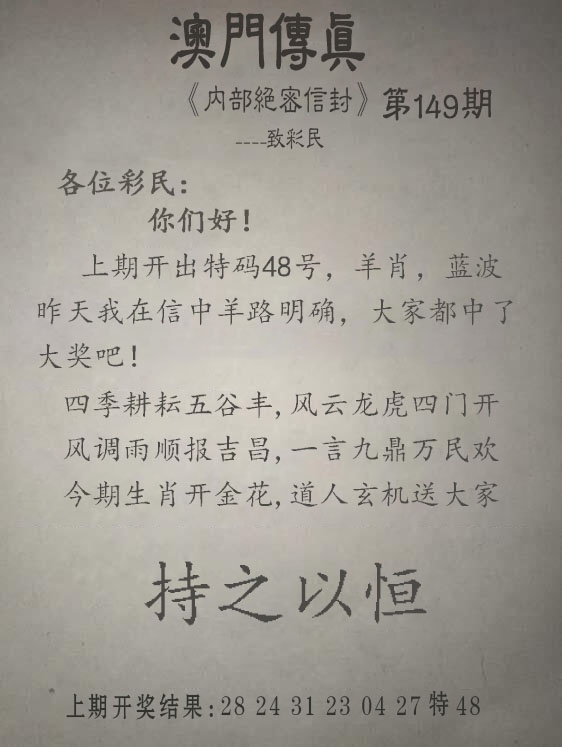 澳門傳眞
《内部絕密信封》第149期
----致彩民
各位彩民：
你们好！
上期开出特码48号，羊肖，蓝波
昨天我在信中羊路明确，大家都中了
大奖吧！
四季耕耘五谷丰,风云龙虎四门开
风调雨顺报吉昌,一言九鼎万民欢
今期生肖开金花,道人玄机送大家
持之以恒
上期开奖结果:28 24 31 23 04 27特48